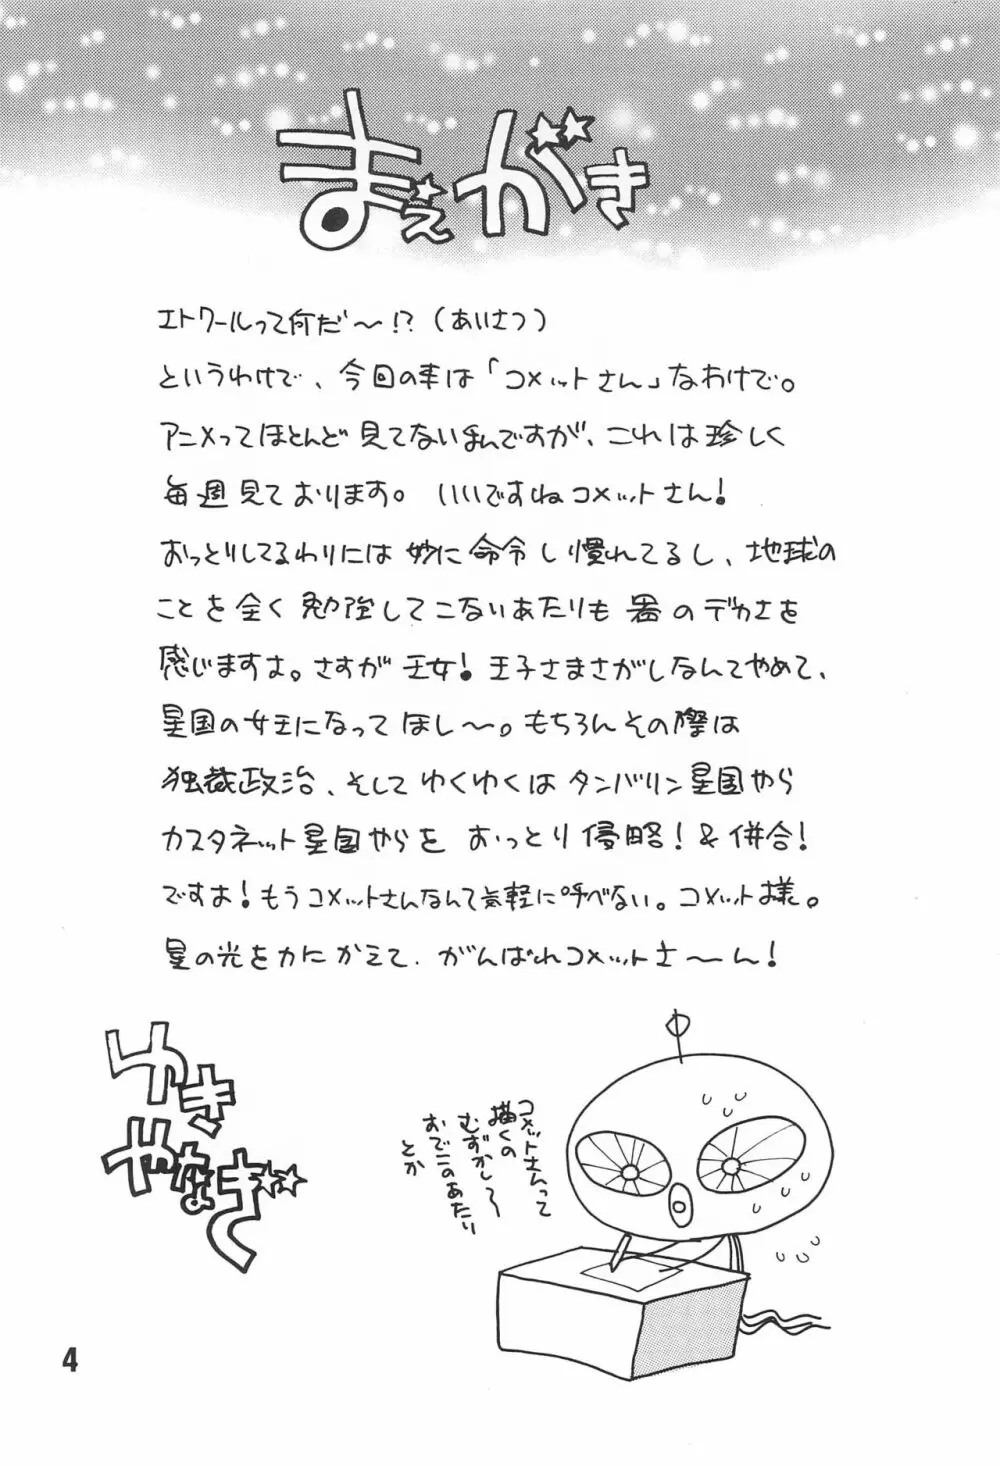 まえがき
エトワールって何だ〜!?（あいさつ）
というわけで、今回の本は「コメットさん」なわけで。
アニメってほとんど見てないもんですが、これは珍しく
毎週見ております。いいですねコメットさん!
おっとりしてるわりには妙に命令し慣れてるし、地球の
ことを全く勉強してこないあたりも器のデカさを
感じますよ。さすが王女! 王子さまさがしなんてやめて、
星国の女王になってほし〜。もちろんその際は
独裁政治、そしてゆくゆくはタンバリン星国やら
カスタネット星国やらをおっとり侵略!&併合!
ですよ! もうコメットさんなんて気軽に呼べない。コメット様。
星の光を力にかえて、がんばれコメットさ〜ん!
コメットさんって
描くの
むずかし〜
おでこのあたり
とか
ゆき
やなぎ
4